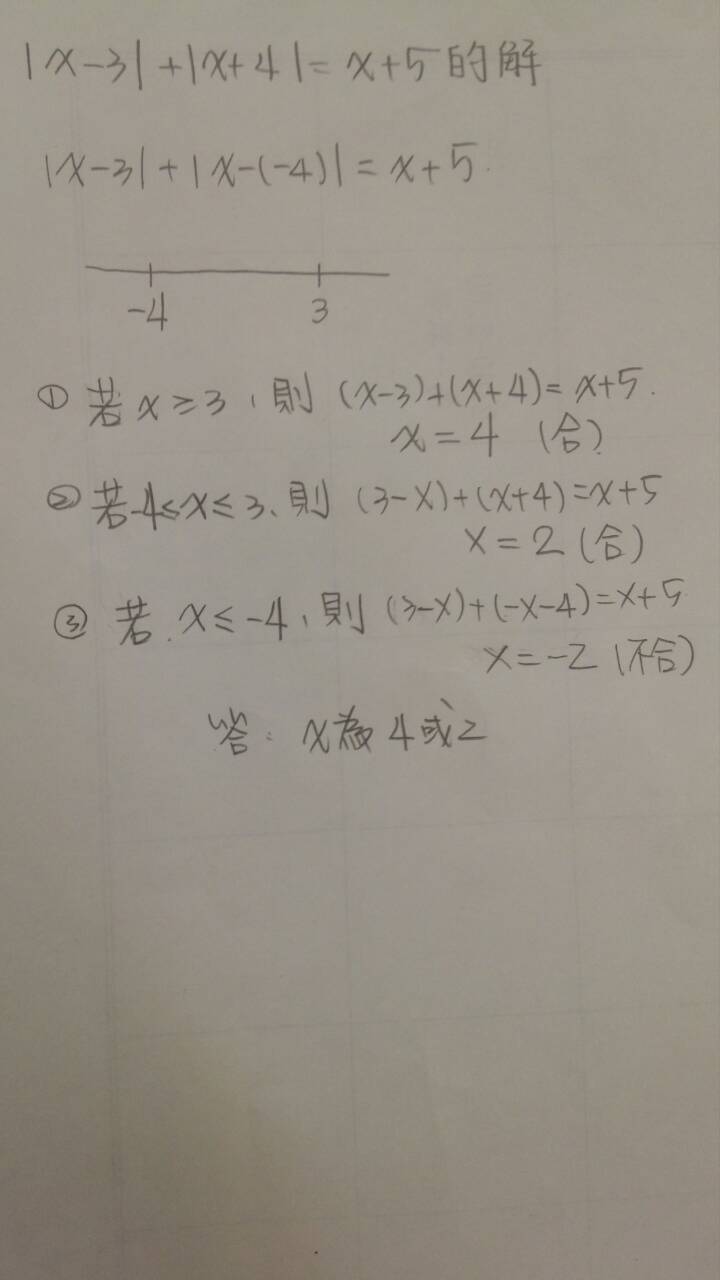 |x-3|+|x+4|=x+5的解
|x-3|+|x-(-4)|=x+5.
-4 3
① 若x≥3,則 (x-3)+(x+4)=x+5.
x=4 (合)
② 若-4≤x≤3、則 (3-x)+(x+4)=x+5
x=2(合)
③ 若.x≤-4,則 (3-x)+(-x-4)=x+5
x=-2(不合)
答: x為4或2